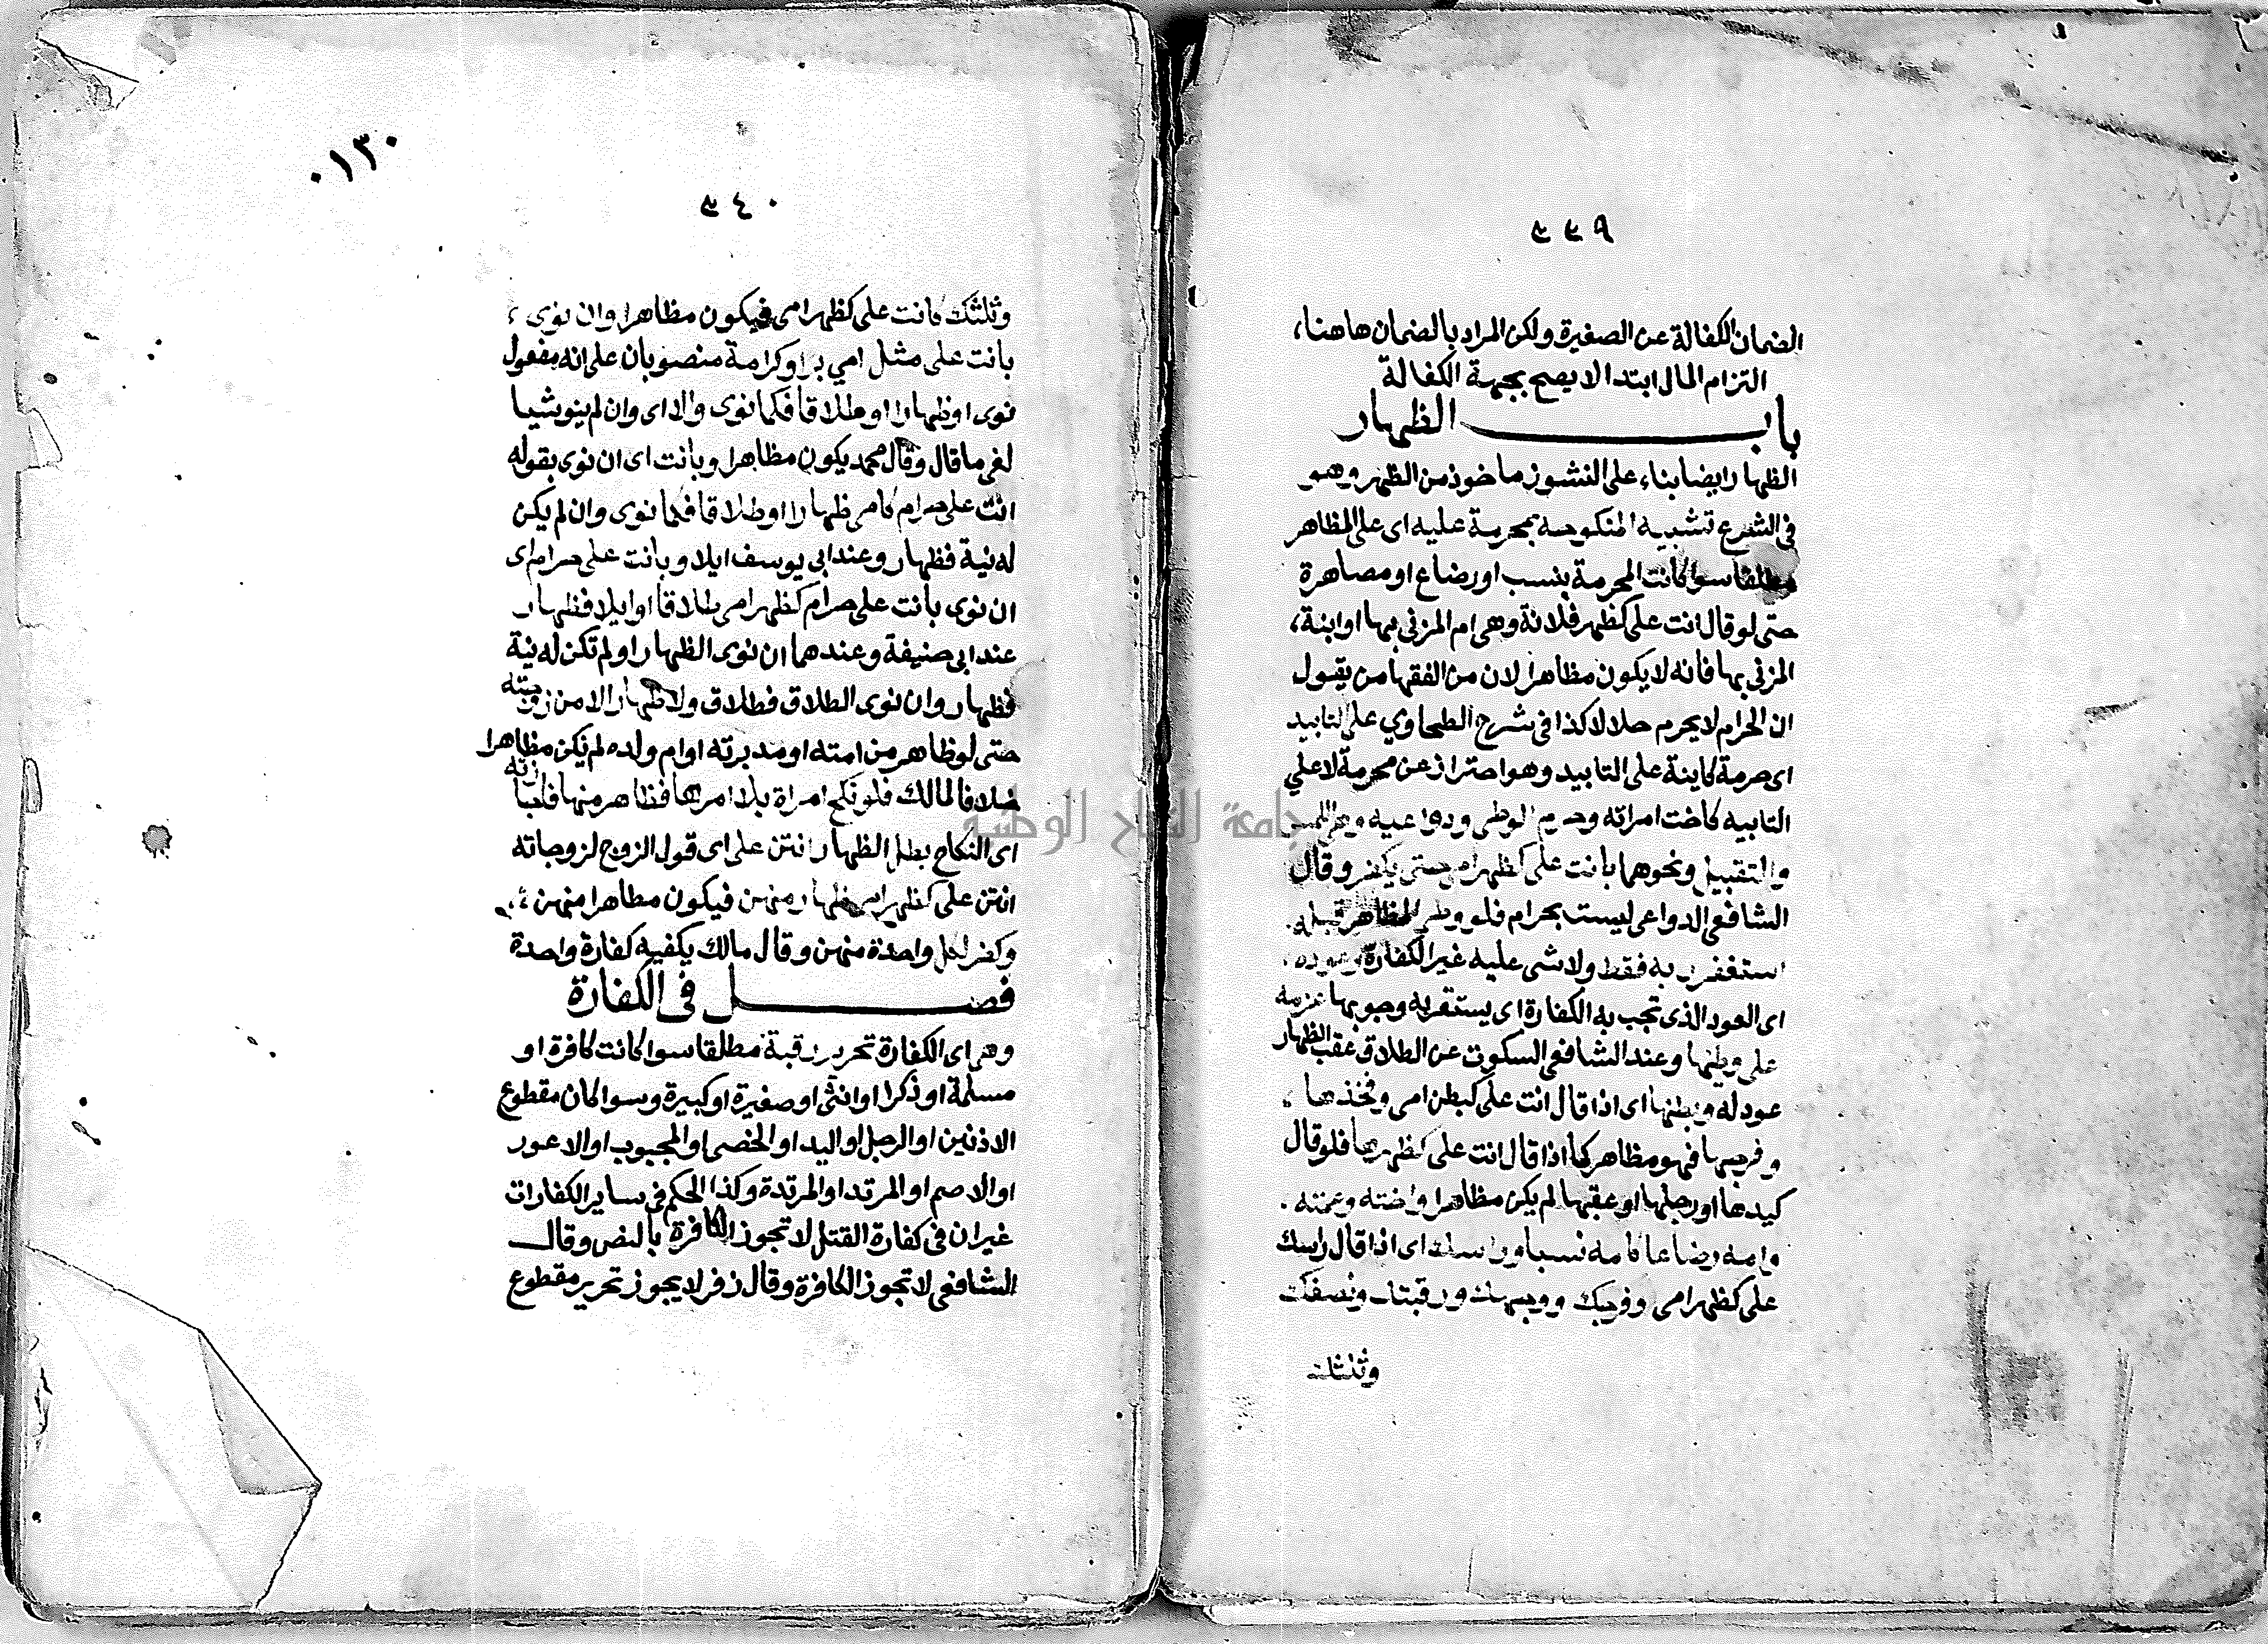 ٣٣٩
الضمان الكفالة عن الصغيرة ولكن المراد بالضمان هاهنا،
التزام المال ابتدا لا يصح بجهة الكفالة
باب الظهار
الظهار ايضا بناء على النشوز ماخوذ من الظهر وهو
في الشرع تشبيه المنكوحة بمحرمة عليه اى على المظاهر
مطلقا سوا كانت المحرمة بنسب او رضاع او مصاهرة
حتى لو قال انت على كظهر فلانة وهى ام المزنى بها او ابنة،
المزنى بها فانه لا يكون مظاهرا لان من الفقها من يقول
ان الحرام لا يحرم حلالا كذا فى شرح الطحاوي على التابيد
اى حرمة كاينة على التابيد وهو احتراز عن محرمة لا علي
التابيه كاخت امراته وحرم الوطى ودواعيه وهو اللمس
والتقبيل ونحوهما بانت على كظهر امى حتى يكفر وقال
الشافعى الدواعى ليست بحرام فلو وطى المظاهر قبله
استغفر ربه فقط ولا شى عليه غير الكفارة وعوده
اى العود الذى تجب به الكفارة اى يستقر به وجوبها عزمه
على وطئها وعند الشافعى السكوت عن الطلاق عقب الظهار
عود له وبطنها اى اذا قال انت على كبطن امى وفخذها
وفرجها فهو مظاهر كما اذا قال انت على كظهرها فلو قال
كيدها او رجلها او عقبها لم يكن مظاهرا واخته وعمته
وامه رضاعا كامه نسبا وراسك اى اذا قال راسك
على كظهر امى وفرجك ووجهك ورقبتك ونصفك
وثلثك
٠١٣٠
٣٤٠
وثلثك كانت على كظهر امى فيكون مظاهرا وان نوى
بانت على مثل امي برا او كرامة منصوبان على انه مفعول
نوى او ظهارا او طلاقا فكما نوى والا اى وان لم ينو شيا
لغى ما قال وقال محمد يكون مظاهرا وبانت اى ان نوى بقوله
انت على حرام كامى ظهارا او طلاقا فكما نوى وان لم يكن
له نية فظهار وعند ابى يوسف ايلا وبانت على حرام اى
ان نوى بانت على حرام كظهر امى طلاقا او ايلا فظهار
عند ابى حنيفة وعندهما ان نوى الظهار او لم تكن له نية
فظهار وان نوى الطلاق فطلاق ولا ظهار الا من زوجته
حتى لو ظاهر من امته او مدبرته او ام ولده لم يكن مظاهرا
خلافا لمالك فلو نكح امراة بلا امرها فظاهر منها فاجازته
اى النكاح بطل الظهار انتن على اى قول الزوج لزوجاته
انتن على كظهر امى ظهار منهن فيكون مظاهرا منهن
وكفر لكل واحدة منهن وقال مالك يكفيه كفارة واحدة
فصل فى الكفارة
وهى اى الكفارة تحرير رقبة مطلقا سوا كانت كافرة او
مسلمة او ذكرا او انثى او صغيرة او كبيرة وسوا كان مقطوع
الاذنين او الرجل او اليد او الخصى او المجبوب او الاعور
او الاصم او المرتد او المرتدة وكذا الحكم فى ساير الكفارات
غير ان فى كفارة القتل لا تجوز الكافرة بالنص وقال
الشافعى لا تجوز الكافرة وقال زفر لا يجوز تحرير مقطوع
جامعة النجاح الوطنية